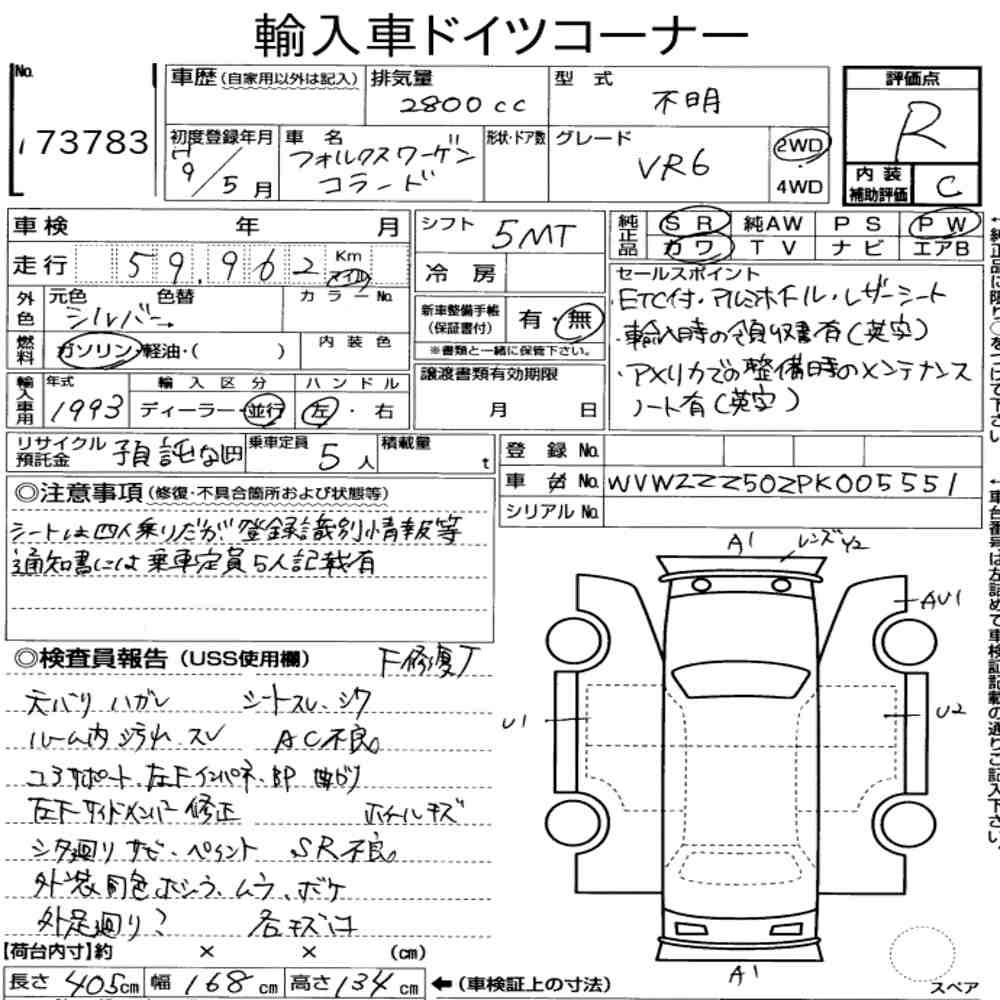 輸入車ドイツコーナー
No. 173783
車歴(自家用以外は記入) 排気量 2800cc 型式 不明
評価点 R
内装補助評価 C
初度登録年月 H9/5月 車名 フォルクスワーゲン コラード 形状・ドア数 グレード VR6 2WD 4WD
車検 年 月 シフト 5MT
純正品 SR 純AW PS PW
カワ TV ナビ エアB
走行 59,962 Km マイル 冷房
外色 元色 色替 シルバー カラーNo.
燃料 ガソリン・軽油・( ) 内装色
新車整備手帳(保証書付) 有・無
※書類と一緒に保管下さい。
セールスポイント
・ETC付・アルミホイール・レザーシート
・輸入時の領収書有(英字)
・アメリカでの整備時のメンテナンス
ノート有(英字)
輸入車用 年式 1993 輸入区分 ディーラー・並行 ハンドル 左・右
譲渡書類有効期限 月 日
リサイクル預託金 預託な四 乗車定員 5人 積載量 t
登録No.
車台No. WVWZZZ50ZPK005551
シリアルNo.
◎注意事項(修復・不具合箇所および状態等)
シートは四人乗りだが登録識別情報等
通知書には乗車定員5人記載有
◎検査員報告(USS使用欄) F修復歴
天バリハガレ シートスレ、シワ
ルーム内汚れ、スレ AC不良。
コアサポート、左Fインパネ、BP曲がり
左Fサイドメンバー修正 ホイールキズ
シタ廻りサビ・ペイント SR不良。
外装同色ボシう、ムラ、ボケ
外足廻り? 各キズ凹
A1 レンズY2
AU1
U1
U2
A1
スペア
【荷台内寸】約 × × (cm)
長さ 405cm 幅 168cm 高さ 134cm ←(車検証上の寸法)
←純正品に限り○をつけて下さい。
←車台番号は左詰めで車検証記載の通りご記入下さい。